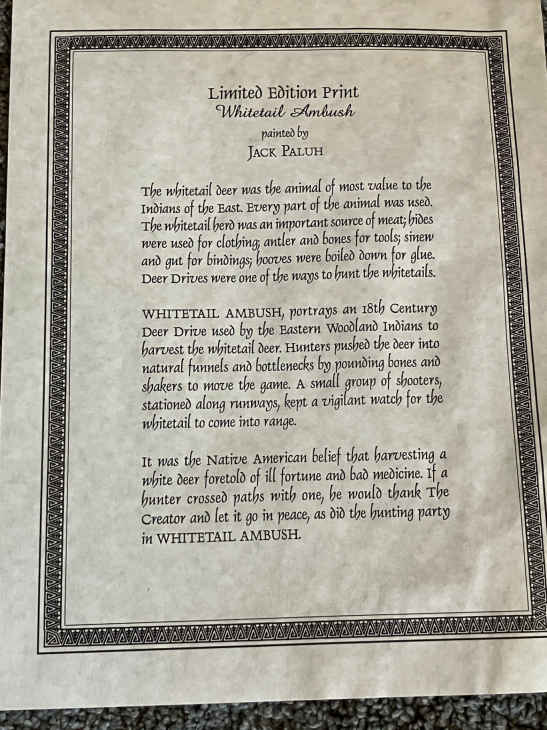 Limited Edition Print
Whitetail Ambush
painted by
JACK PALUH
The whitetail deer was the animal of most value to the
Indians of the East. Every part of the animal was used.
The whitetail herd was an important source of meat; hides
were used for clothing; antler and bones for tools; sinew
and gut for bindings; hooves were boiled down for glue.
Deer Drives were one of the ways to hunt the whitetails.
WHITETAIL AMBUSH, portrays an 18th Century
Deer Drive used by the Eastern Woodland Indians to
harvest the whitetail deer. Hunters pushed the deer into
natural funnels and bottlenecks by pounding bones and
shakers to move the game. A small group of shooters,
stationed along runways, kept a vigilant watch for the
whitetail to come into range.
It was the Native American belief that harvesting a
white deer foretold of ill fortune and bad medicine. If a
hunter crossed paths with one, he would thank The
Creator and let it go in peace, as did the hunting party
in WHITETAIL AMBUSH.